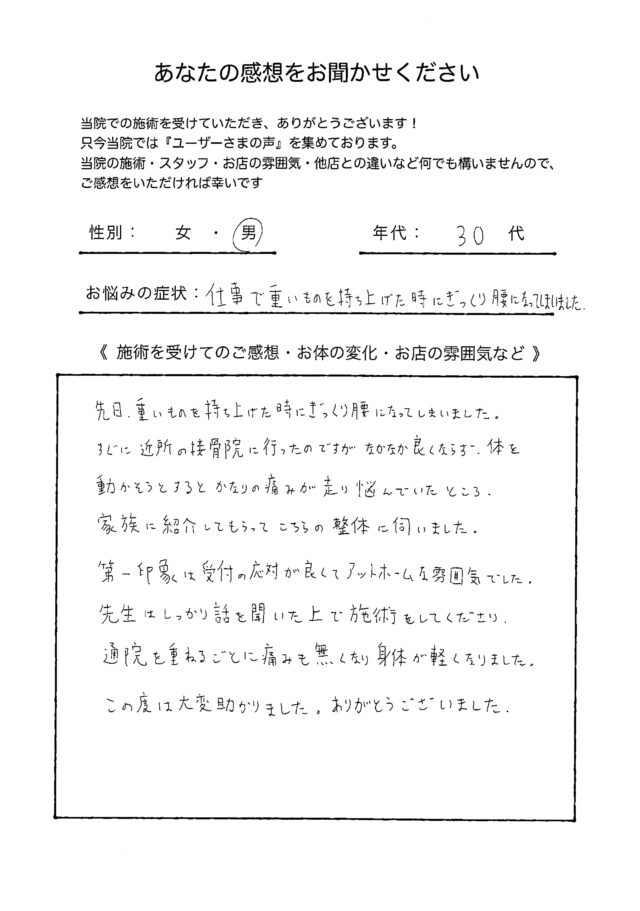 あなたの感想をお聞かせください
当院での施術を受けていただき、ありがとうございます！
只今当院では『ユーザーさまの声』を集めております。
当院の施術・スタッフ・お店の雰囲気・他店との違いなど何でも構いませんので、
ご感想をいただければ幸いです
性別： 女 ・ 男 年代： 30 代
お悩みの症状：仕事で重いものを持ち上げた時にぎっくり腰になってしまいました.
《 施術を受けてのご感想・お体の変化・お店の雰囲気など 》
先日、重いものを持ち上げた時にぎっくり腰になってしまいました。
すぐに近所の接骨院に行ったのですがなかなか良くならず、体を
動かそうとするとかなりの痛みが走り悩んでいたところ、
家族に紹介してもらってこちらの整体に伺いました。
第一印象は受付の応対が良くてアットホームな雰囲気でした。
先生はしっかり話を聞いた上で施術をしてくださり、
通院を重ねるごとに痛みも無くなり身体が軽くなりました。
この度は大変助かりました。ありがとうございました.